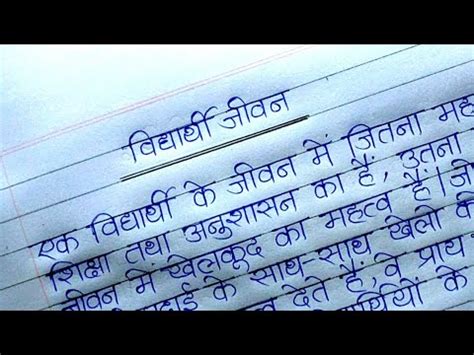 विद्यार्थी जीवन
एक विद्यार्थी के जीवन में जितना मह
शिक्षा तथा अनुशासन का हैं, उतना
जीवन में खेलकूद का महत्व हैं। जो
के साथ-साथ खेलो
देते हैं, वे प्राय
के